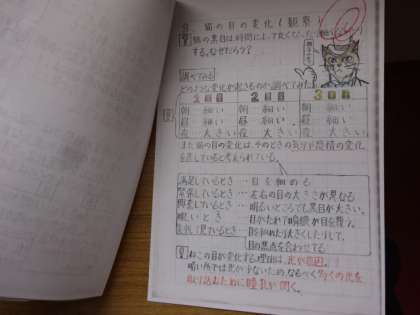 猫の目の変化(観察)
猫の黒目は時間によって大きくなったり
する。なぜだろう?
調べてみる
どのような変化が起きるのか、調べてみた
1日目 2日目 3日目
朝 細い 朝 細い 朝 細い
昼 細い 昼 細い 昼 細い
夜 大きい 夜 大きい 夜 大きい
また猫の目の変化は、そのときの気分や感情の変化
を表していると考えられている。
満足しているとき…目を細める
左右の目の大きさが異なる
興奮しているとき…明るいところでも黒目が大きい。
眠いとき
目の焦点を合わせてる
ねこの目が変化する理由は、光が原因。!
暗い所では光が少ないため、なるべく多くの光を
取り込むために瞳孔が開く。